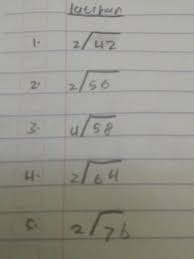 Latihan
1. 2√42
2. 2√50
3. 4√58
4. 2√64
5. 2√76